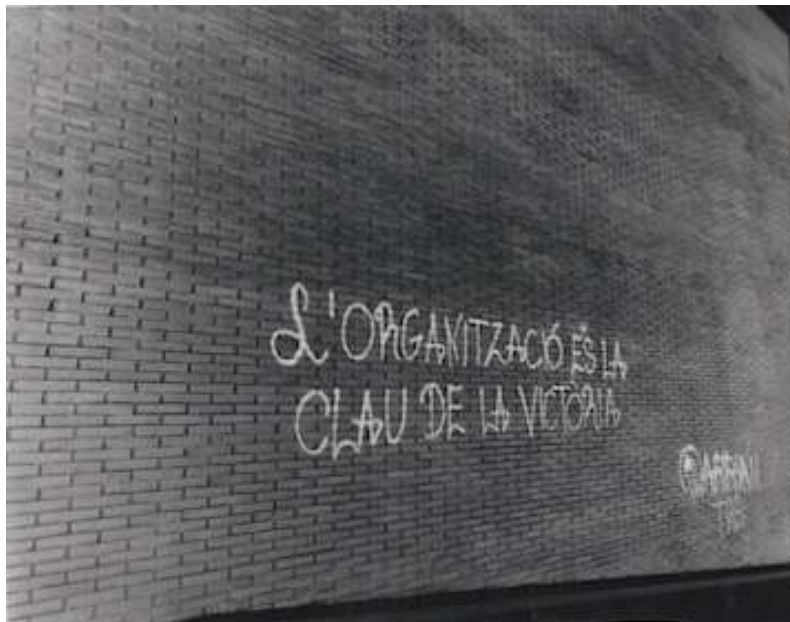 L'ORGANITZACIÓ ÉS LA
CLAU DE LA VICTÒRIA
@ARRAN